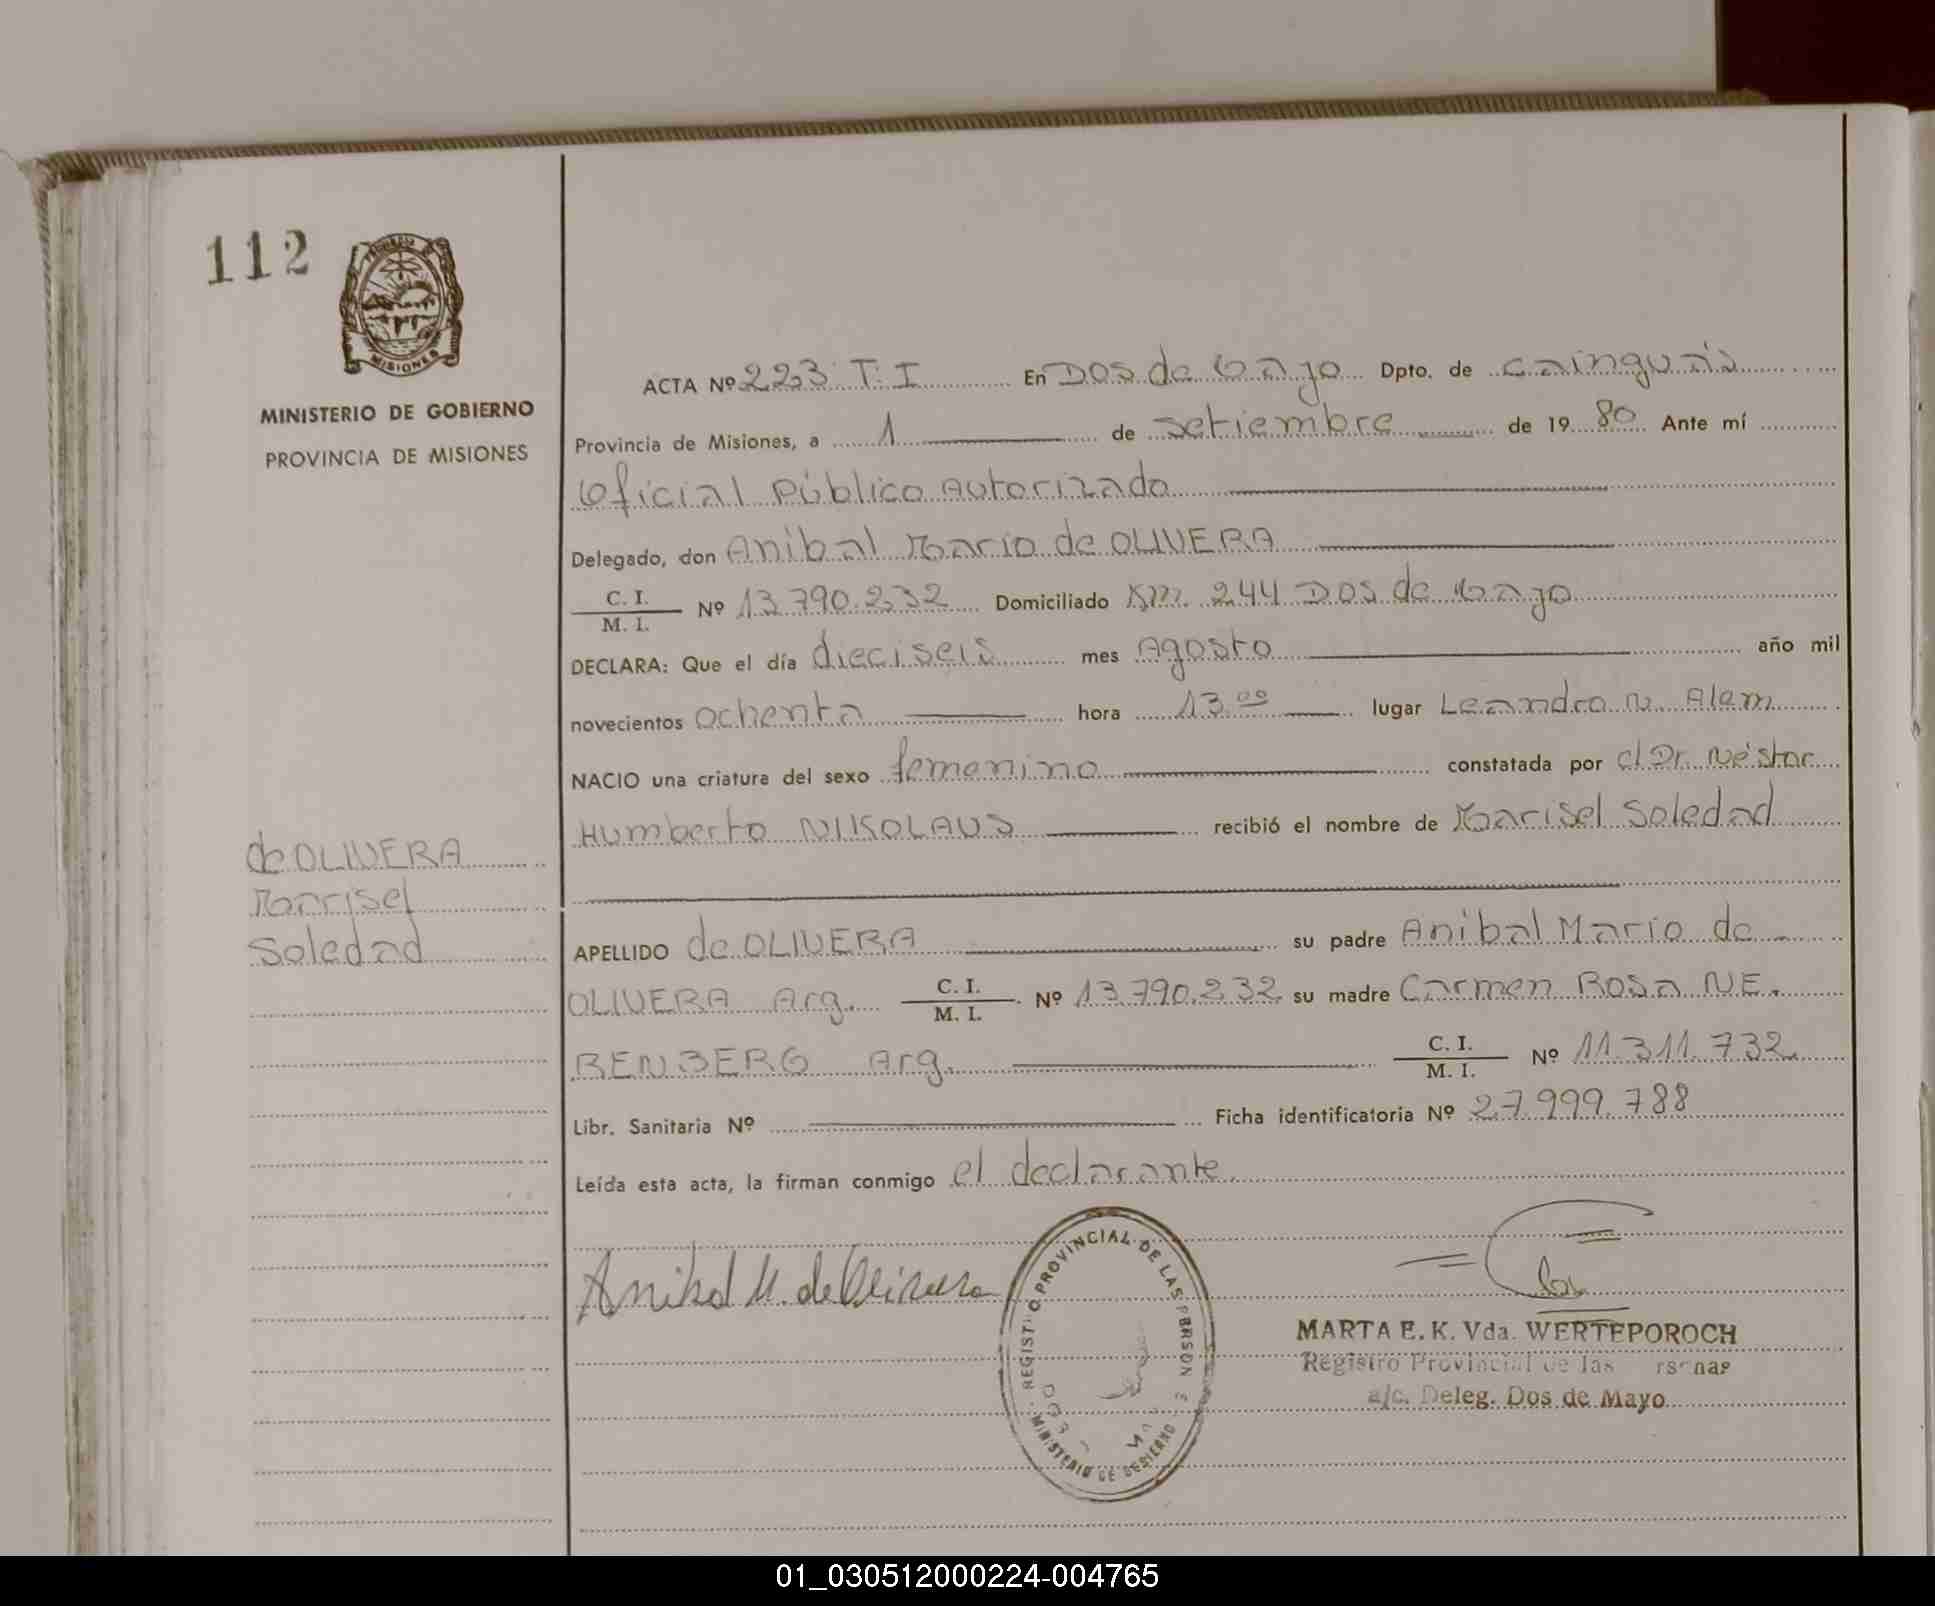 112
MISIONES
MINISTERIO DE GOBIERNO
PROVINCIA DE MISIONES
ACTA Nº 223 T. I En DOS de Mayo Dpto. de Cainguás
Provincia de Misiones, a 1 de Setiembre de 1980 Ante mí
Oficial Público Autorizado
Delegado, don Anibal Mario de OLIVERA
C. I. / M. I. Nº 13.790.232 Domiciliado Km. 244 DOS de Mayo
DECLARA: Que el día dieciseis mes Agosto año mil
novecientos ochenta hora 13.00 lugar Leandro N. Alem
NACIO una criatura del sexo femenino constatada por el Dr. Néstor
Humberto NIKOLAUS recibió el nombre de Marisel Soledad
de OLIVERA
Marisel
Soledad
APELLIDO de OLIVERA su padre Anibal Mario de
OLIVERA Arg. C. I. / M. I. Nº 13.790.232 su madre Carmen Rosa NE.
RENBERG Arg. C. I. / M. I. Nº 11.311.732
Libr. Sanitaria Nº Ficha identificatoria Nº 27.999.788
Leída esta acta, la firman conmigo el declarante.
Anibal M. de Olivera
REGISTRO PROVINCIAL DE LAS PERSON
MINISTERIO DE GOBIERNO
MARTA E. K. Vda. WERTEPOROCH
Registro Provincial de las rsonas
a/c. Deleg. Dos de Mayo
01_030512000224-004765